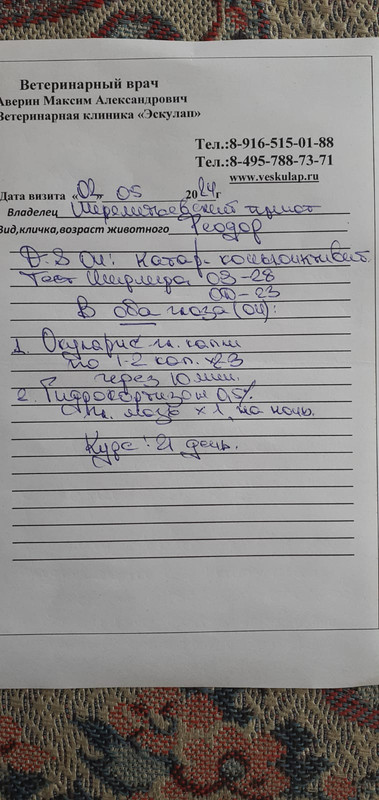 Ветеринарный врач
Аверин Максим Александрович
Ветеринарная клиника «Эскулап»
Тел.:8-916-515-01-88
Тел.:8-495-788-73-71
www.veskulap.ru
Дата визита «02» 05 2024г
Владелец Шереметьевский приют
Вид,кличка,возраст животного Теодор
D.S OU: Катар. конъюнктивит.
Тест Ширмера OS-28
OD-23
В оба глаза (OU):
1. Окуларис гл. капли
по 1-2 кап. x2-3
через 10 мин.
2. Гидрокортизон 0,5%
гл. мазь x1, на ночь.
Курс: 21 день.